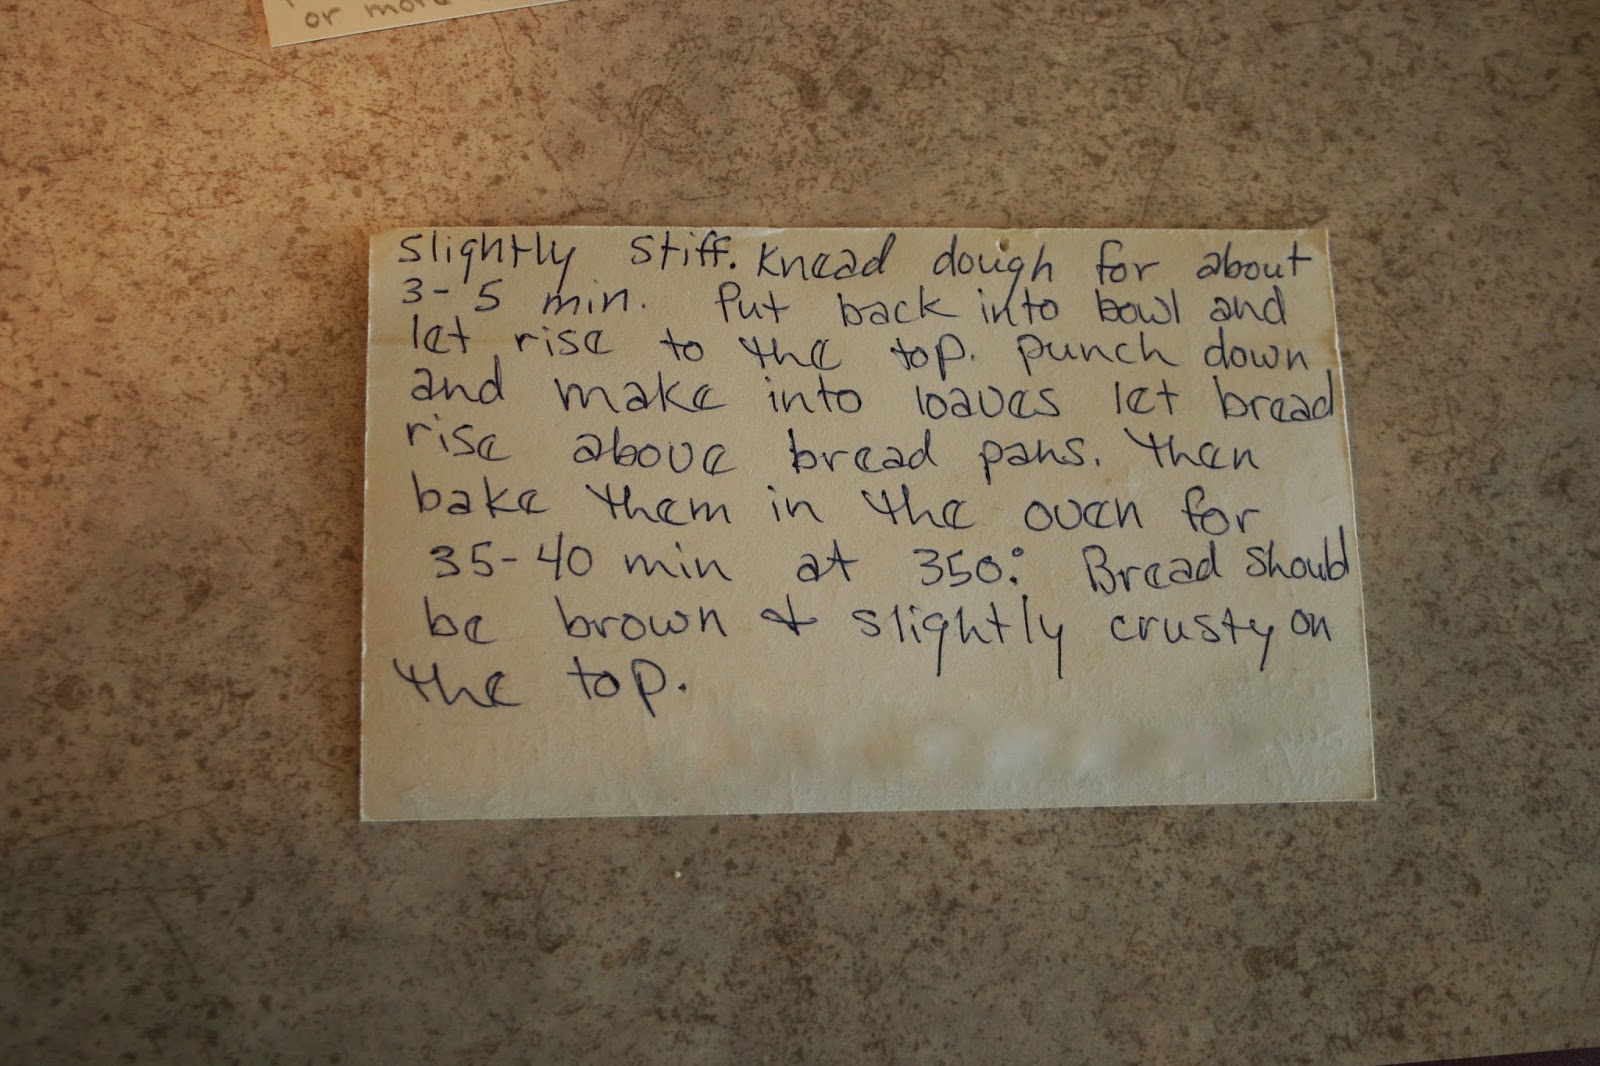 or more
slightly stiff. Knead dough for about
3-5 min. Put back into bowl and
let rise to the top. punch down
and make into loaves let bread
rise above bread pans. Then
bake them in the oven for
35-40 min at 350°. Bread should
be brown & slightly crusty on
the top.